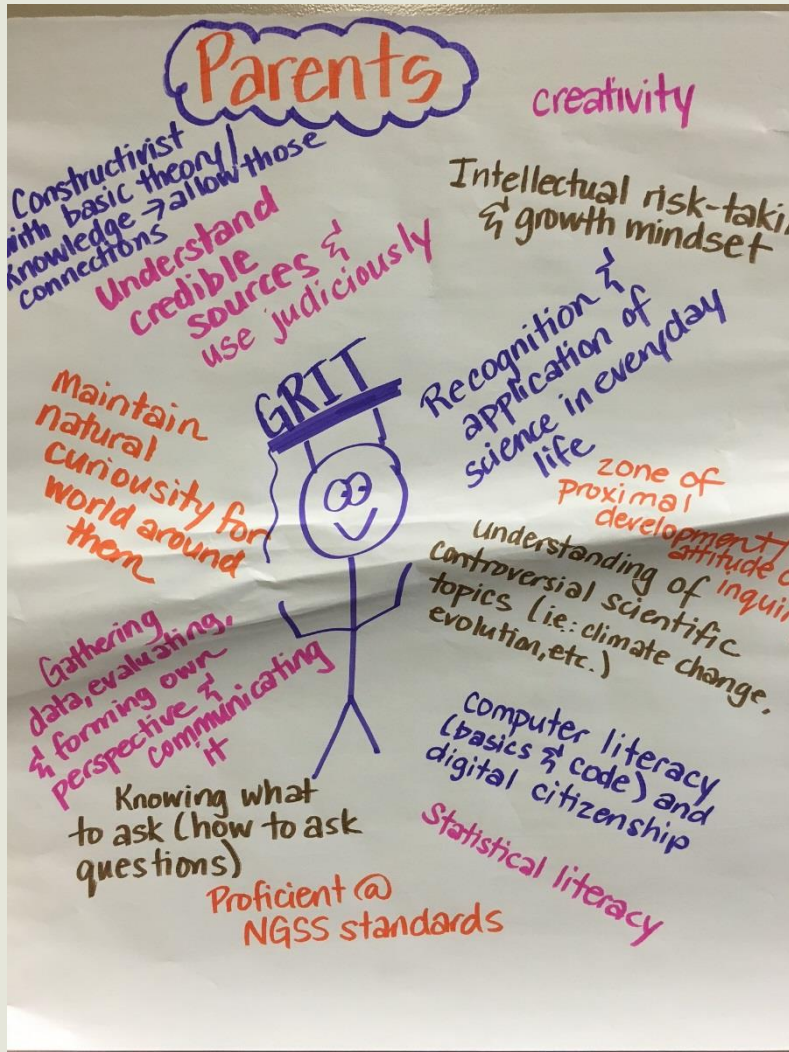 Parents
creativity
Constructivist
with basic theory/
knowledge → allow those
connections
Intellectual risk-taki
& growth mindset
Understand
credible
sources &
use judiciously
GRIT
Recognition &
application of
science in everyday
life
Maintain
natural
curiousity for
world around
them
zone of
proximal
development/
attitude o
inqui
Understanding of
controversial scientific
topics (ie: climate change,
evolution, etc.)
Gathering
data, evaluating,
& forming own
perspective &
communicating
it
computer literacy
(basics & code) and
digital citizenship
Knowing what
to ask (how to ask
questions)
Statistical literacy
Proficient @
NGSS standards